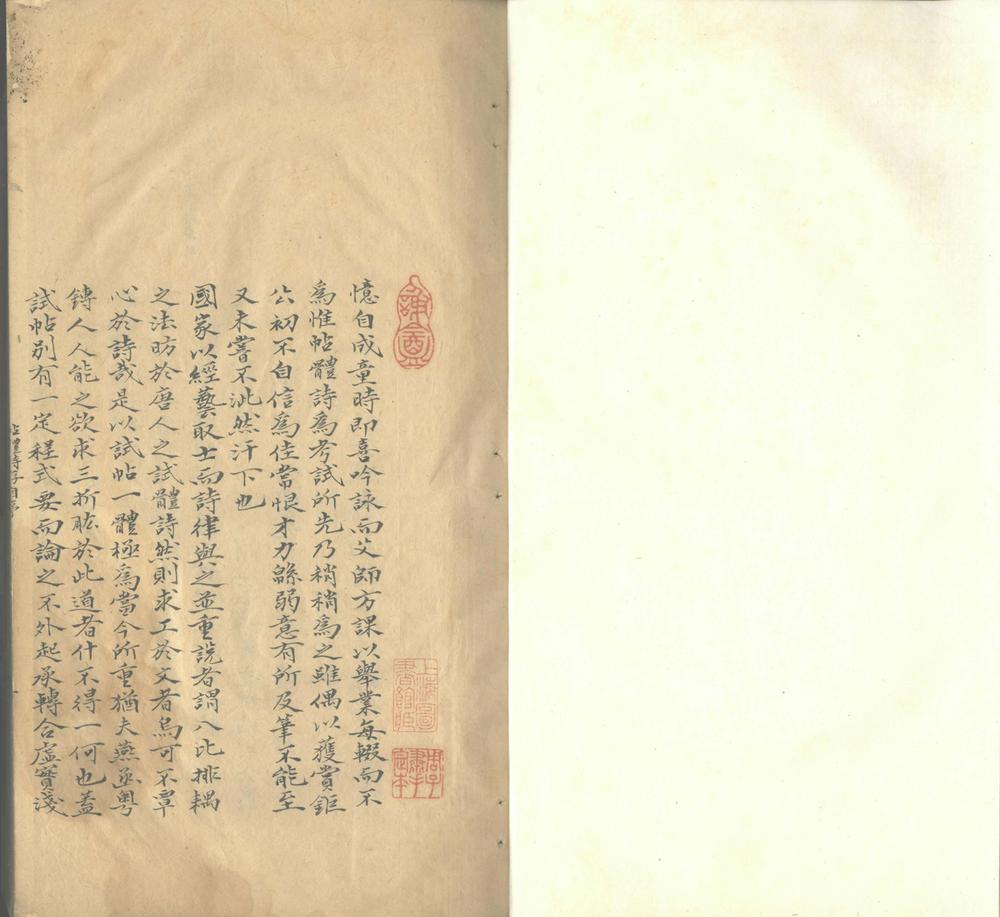 憶自成童時即喜吟詠而父師方課以舉業每輟而不
爲惟帖體詩爲考試所先乃稍稍爲之雖偶以獲賞鉅
公初不自信爲佳常恨才力緜弱意有所及筆不能至
又未嘗不泚然汗下也
國家以經藝取士而詩律與之並重説者謂八比排耦
之法昉於唐人之試體詩然則求工於文者烏可不覃
心於詩哉是以試帖一體極爲當今所重猶夫燕函粵
鎛人人能之欲求三折肱於此道者什不得一何也蓋
試帖別有一定程式要而論之不外起承轉合虛實淺
帖體詩存自序
上海圖
書館藏